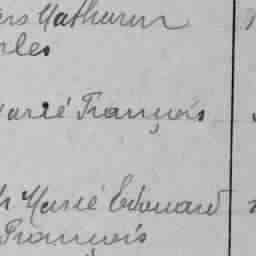 Mathurin
Marie François
Marie Edouard
François